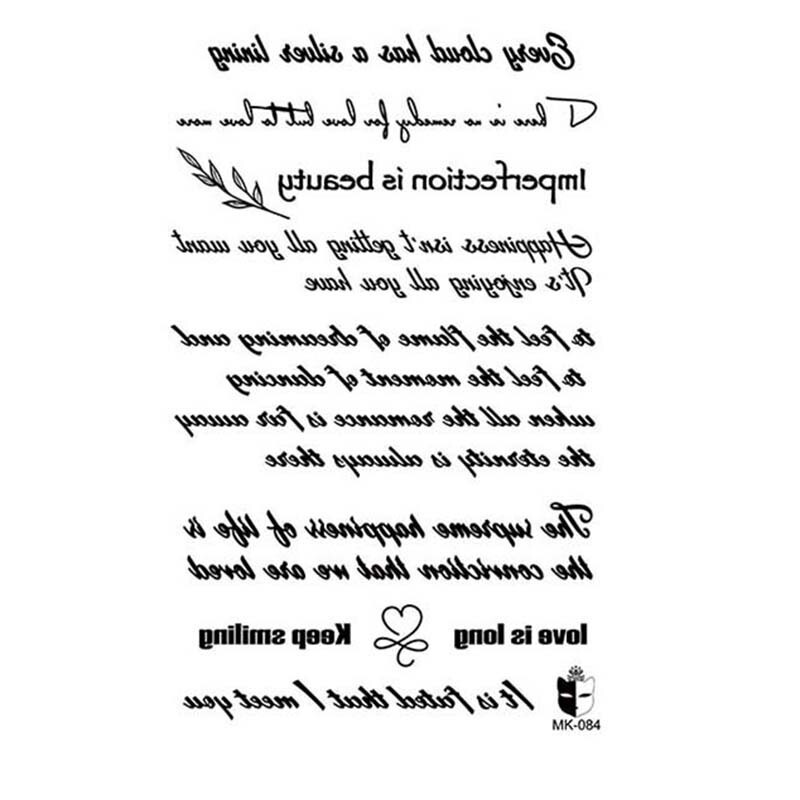 Every cloud has a silver lining
There is no remedy for love but to love more
Imperfection is beauty
Happiness isn't getting all you want
It's enjoying all you have
to feel the flame of dreaming and
to feel the moment of dancing
when all the romance is far away
the eternity is always there
The supreme happiness of life is
the conviction that we are loved
love is long
Keep smiling
It is fated that I meet you
MK-084